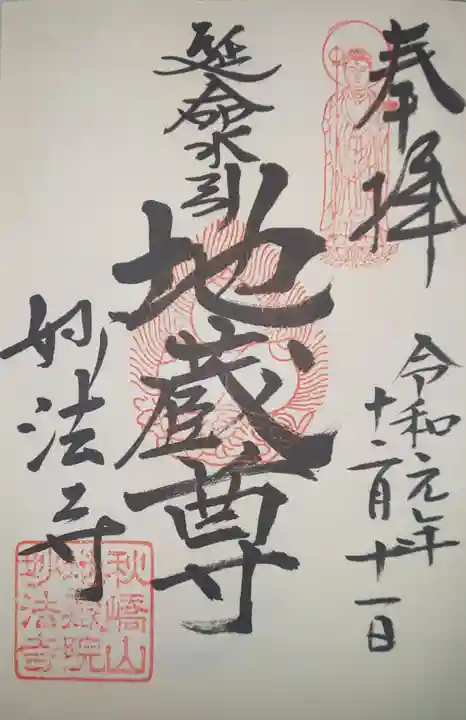 奉拝
令和元年
十二月十一日
延命水引
地蔵尊
妙法寺
秋嶋山
院
妙法寺